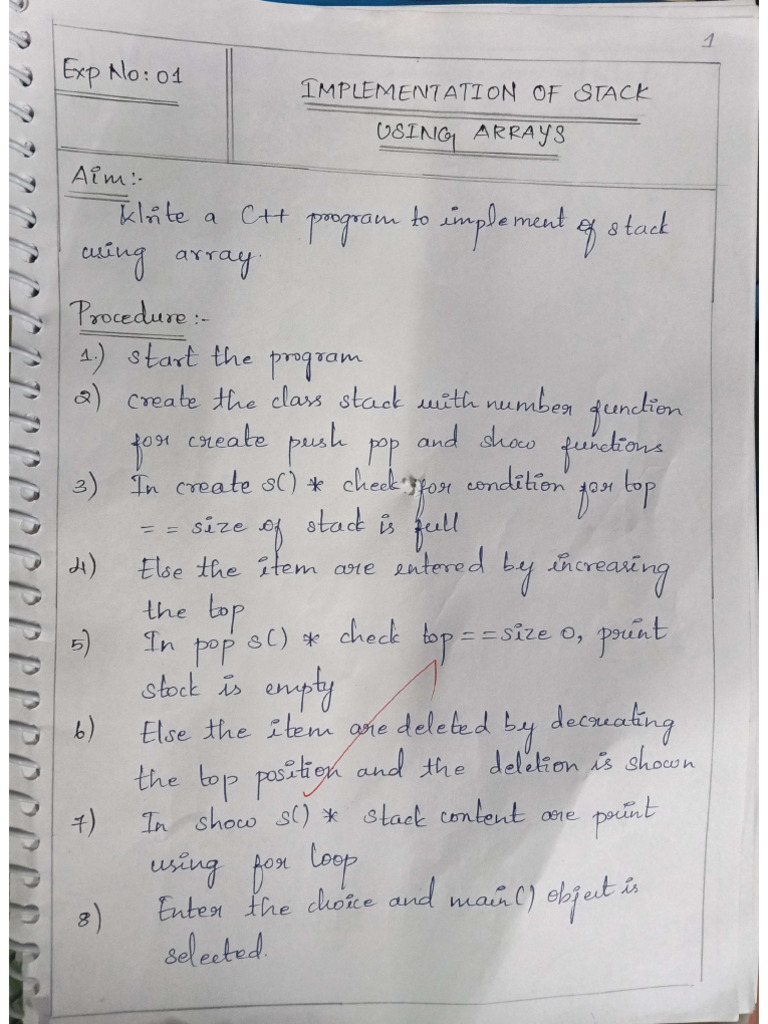 1
Exp No: 01
IMPLEMENTATION OF STACK
USING ARRAYS
Aim:-
Write a C++ program to implement of stack
using array.
Procedure:-
1.) Start the program
2) create the class stack with number function
for create push pop and show functions
3) In create s() * check for condition for top
== size of stack is full
4) Else the item are entered by increasing
the top
5) In pop s() * check top == size 0, print
stock is empty
6) Else the item are deleted by decreating
the top position and the deletion is shown
7) In show s() * stack content are print
using for loop
8) Enter the choice and main() object is
selected.